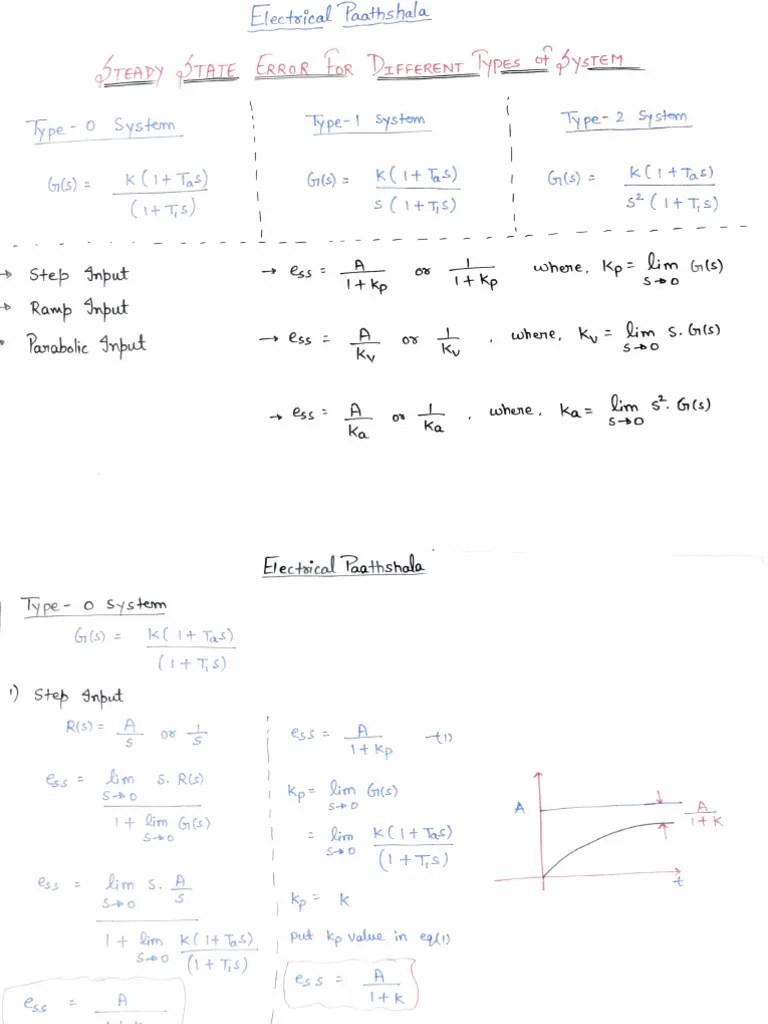 Electrical Paathshala
STEADY STATE ERROR FOR DIFFERENT TYPES OF SYSTEM
Type - 0 System
G(s) = K(1+Tas) / (1+T1s)
Type-1 System
G(s) = K(1+Tas) / s(1+T1s)
Type-2 System
G(s) = K(1+Tas) / s²(1+T1s)
→ Step Input
→ Ramp Input
Parabolic Input
→ ess = A/(1+Kp) or 1/(1+Kp) where, Kp = lim s→0 G(s)
→ ess = A/Kv or 1/Kv , where, Kv = lim s→0 s.G(s)
→ ess = A/Ka or 1/Ka , where, Ka = lim s→0 s².G(s)
Electrical Paathshala
Type - 0 System
G(s) = K(1+Tas) / (1+T1s)
1) Step Input
R(s) = A/s or 1/s
ess = lim s→0 s.R(s) / 1 + lim s→0 G(s)
ess = lim s→0 s.A/s / 1 + lim s→0 K(1+Tas)/(1+T1s)
ess = A
ess = A/(1+Kp) —(1)
Kp = lim s→0 G(s)
= lim s→0 K(1+Tas) / (1+T1s)
Kp = K
put Kp value in eq(1)
ess = A/(1+K)
A
A/(1+K)
t